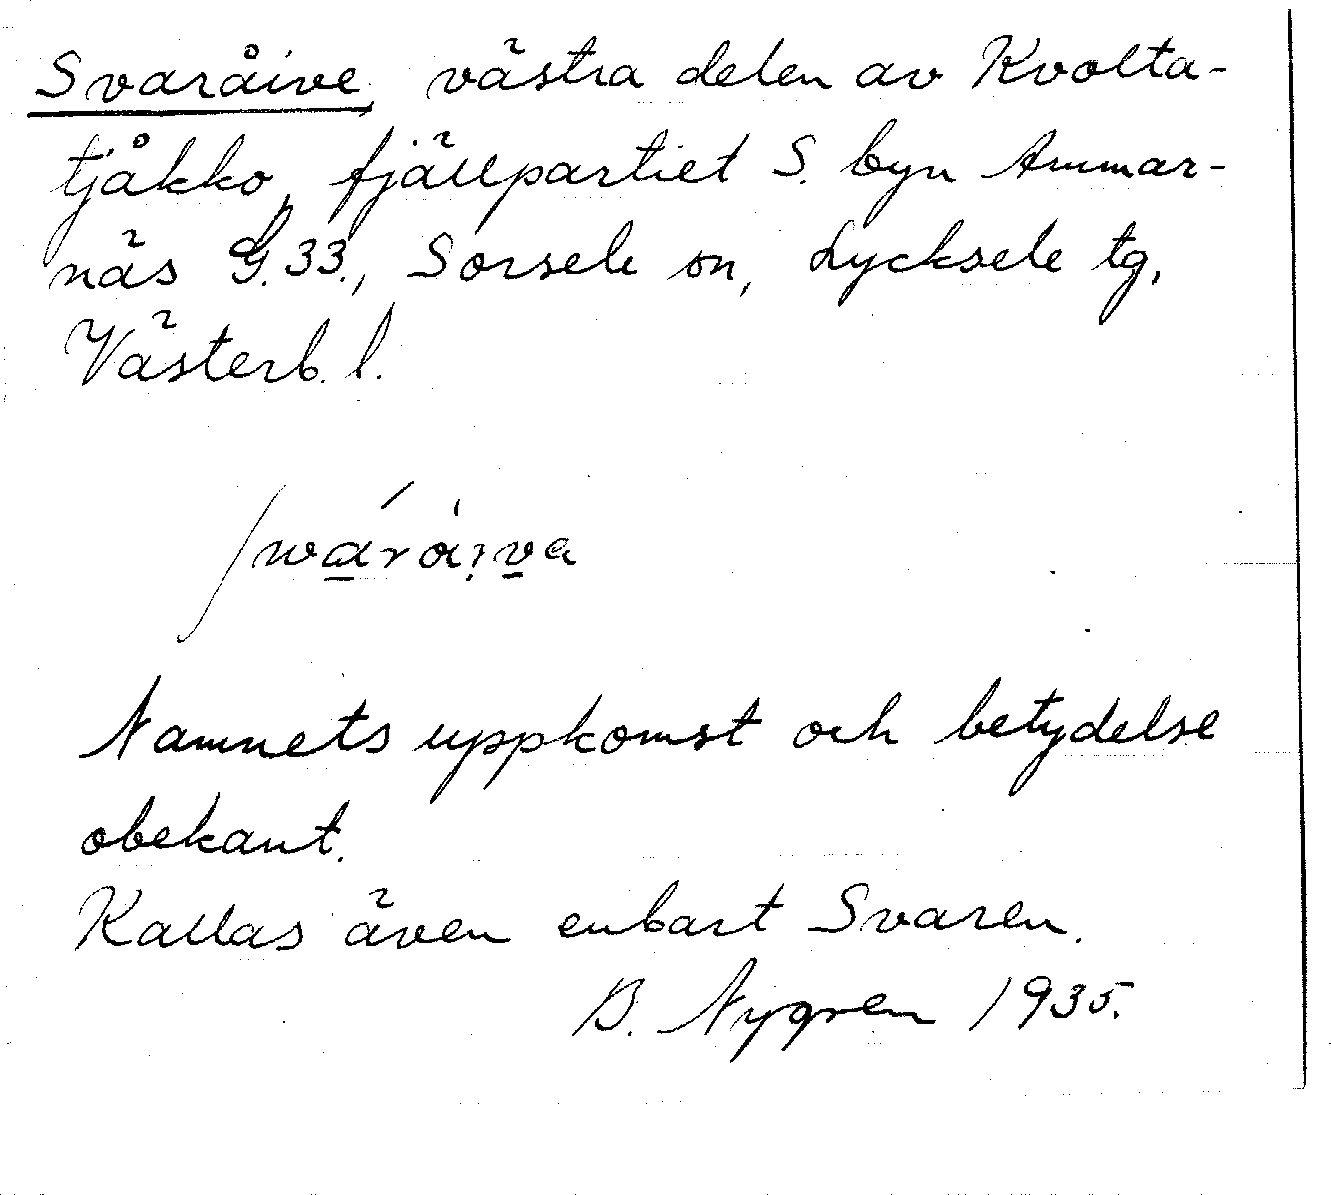 Svaråive, västra delen av Kvolta-
tjåkko, fjällpartiet S. byn Ammar-
näs G.33., Sorsele sn, Lycksele tg,
Västerb. l.
Namnets uppkomst och betydelse
obekant.
Kallas även enbart Svaren.
B. Nygren 1935.